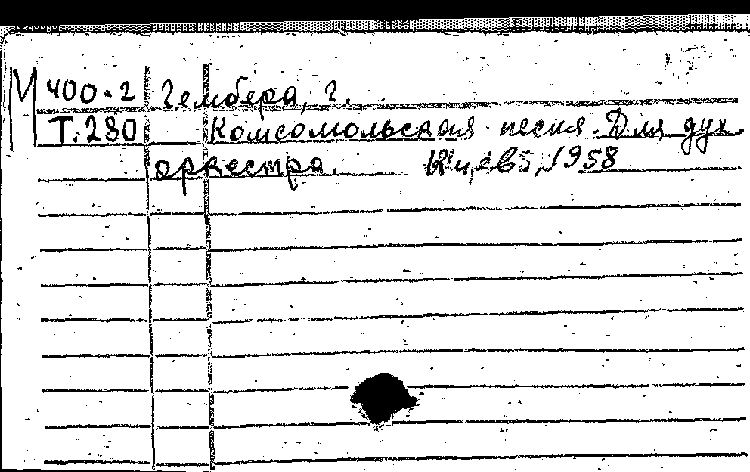 М 400.2 Гембера, Г.
Т.280 Комсомольская песня. Для дух.
оркестра. Киев, 1958